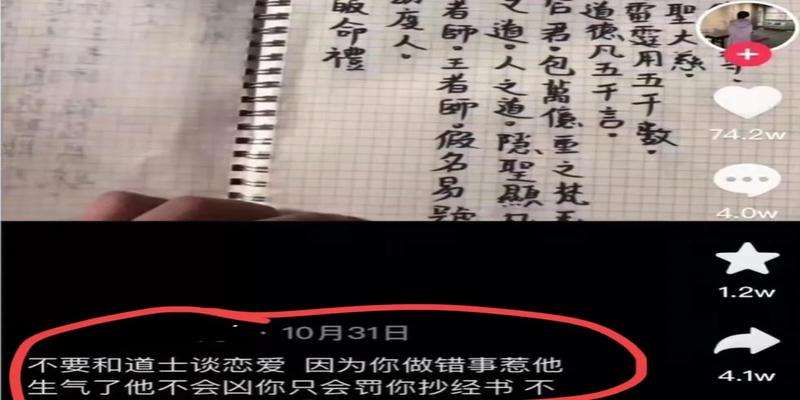 聖大慈
雷霆用五千數.
道德凡五千言.
君.包萬億重之梵
之道.人之道.隱聖顯凡
者師.王者師.假名易號
度人.
皈命禮
74.2w
4.0w
1.2w
4.1w
10月31日
不要和道士谈恋爱 因为你做错事惹他
生气了他不会凶你只会罚你抄经书 不